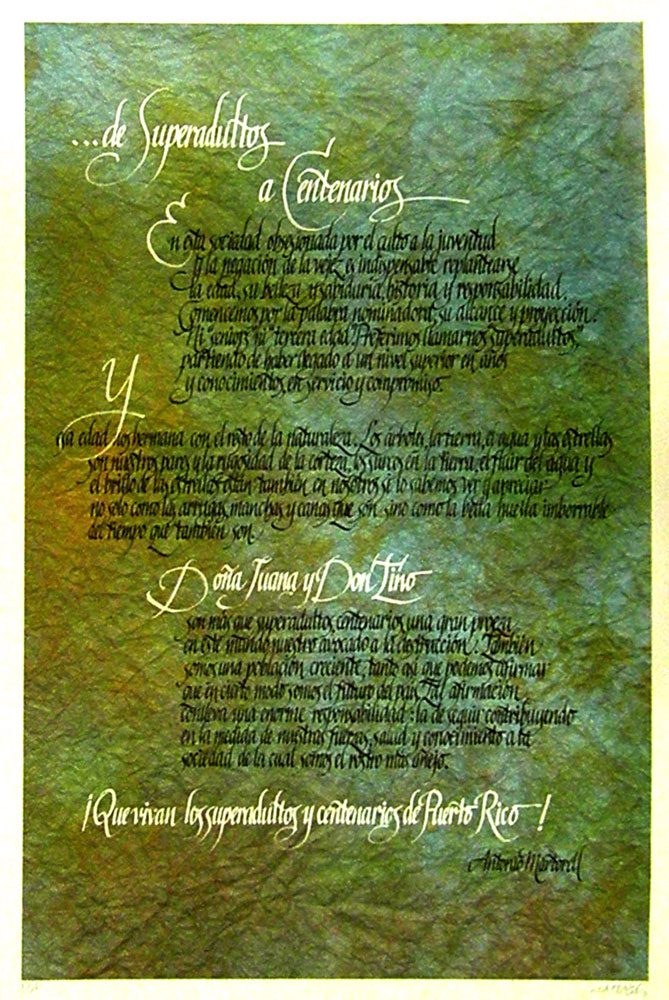 ...de Superadultos
a Centenarios
En esta sociedad obsesionada por el culto a la juventud
y la negación de la vejez es indispensable replantearse
la edad, su belleza y sabiduría, historia y responsabilidad.
Comencemos por la palabra nominadora, su alcance y proyección.
Ni "seniors" ni "tercera edad". Preferimos llamarnos "superadultos,"
partiendo de haber llegado a un nivel superior en años
y conocimientos, en servicio y compromiso.
Y
la edad nos hermana con el resto de la naturaleza. Los árboles, la tierra, el agua y las estrellas
son nuestros pares y la rugosidad de la corteza, los surcos en la tierra, el fluir del agua y
el brillo de las estrellas están también en nosotros si lo sabemos ver y apreciar
no solo como las arrugas, manchas y canas que son sino como la bella huella imborrable
del tiempo que también son.
Doña Juana y Don Lino
son más que superadultos, centenarios, una gran proeza
en este mundo nuestro avocado a la destrucción. También
somos una población creciente, tanto así que podemos afirmar
que en cierto modo somos el futuro del país. Tal afirmación
conlleva una enorme responsabilidad: la de seguir contribuyendo
en la medida de nuestras fuerzas, salud y conocimiento a la
sociedad de la cual somos el rostro más añejo.
¡Que vivan los superadultos y centenarios de Puerto Rico!
Antonio Martorell